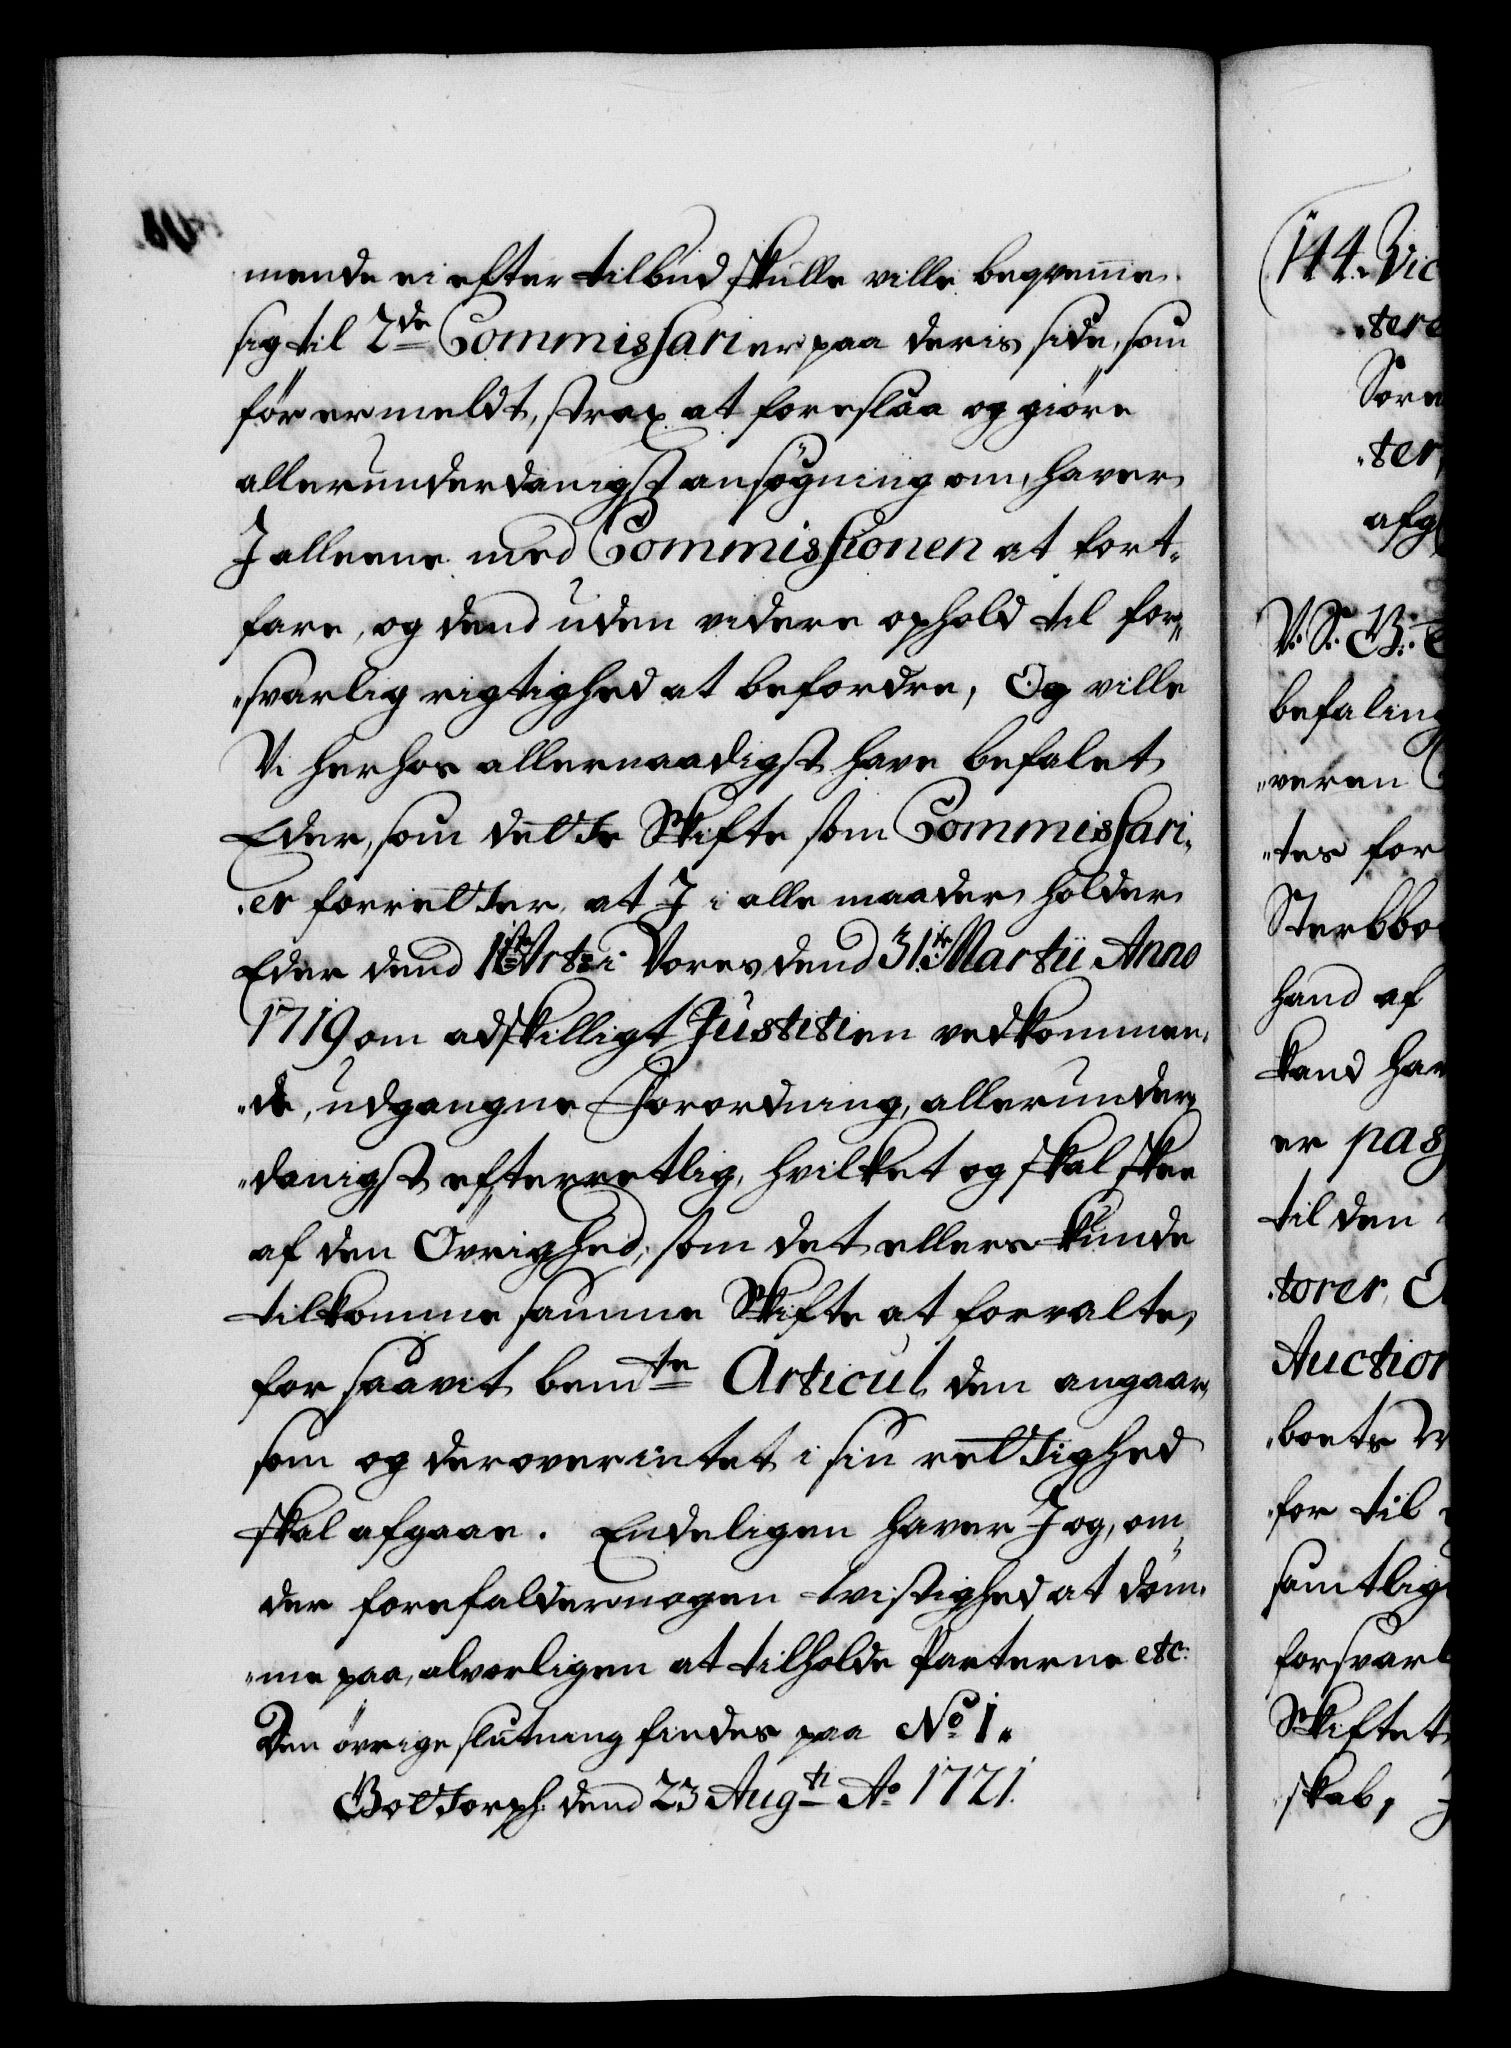 mende ei efter tilbud skulle ville beqveme
sig til 2de Commissarier paa deris side, som
för er meldt, strax at foreslaa og giöre
allerunderdanigst ansögning om, haver
J alleene med Commissionen at fort¬
fare, og dend uden videre ophold til for¬
„svarlig rigtighed at befordre, Og ville
Vi herhos allernaadigst have befalet
Eder, som dette Skifte som Commissari„
„er forretter, at J i alle maader holder
Eder dend 1ste Art: i Vores dend 31te Martii Anno
1719 om adskilligt Justitien vedkommen„
„de, udgangne Forordning, allerunder„
„danigst efterretlig, hvilket og skal skee
af den Övrighed, som det ellers kunde
tilkomme samme Skifte at forvalte,
for saavit bemte Articul den angaar,
som og derover intet i sin rettighed
skal afgaae. Endeligen haver J og, om
der forefalder nogen tvistighed at döm„
„me paa, alvorligen at tilholde Parterne etc.
Den övrige slutning findes paa No 1.
Gottorph dend 23 Augti Ao 1721.
144. Vic
„tere
Sören
„ter,
afg
V. S. G. T.
befaling
„veren
„tes for
Sterbbo
hand af
kand hav
er pas
til den
„torer,
Auction
„boets
for til
samtlig
forsvarl
Skiftet
skab,